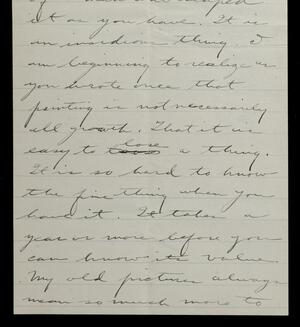 it as you have. It is
an insidious thing, I
am beginning to realize as
you wrote once that
painting is not necessarily
all growth. That it is
easy to lose a thing.
It is so hard to know
the fine thing when you
have it. It takes a
year or more before you
can know its value.
My old pictures always
mean so much more to